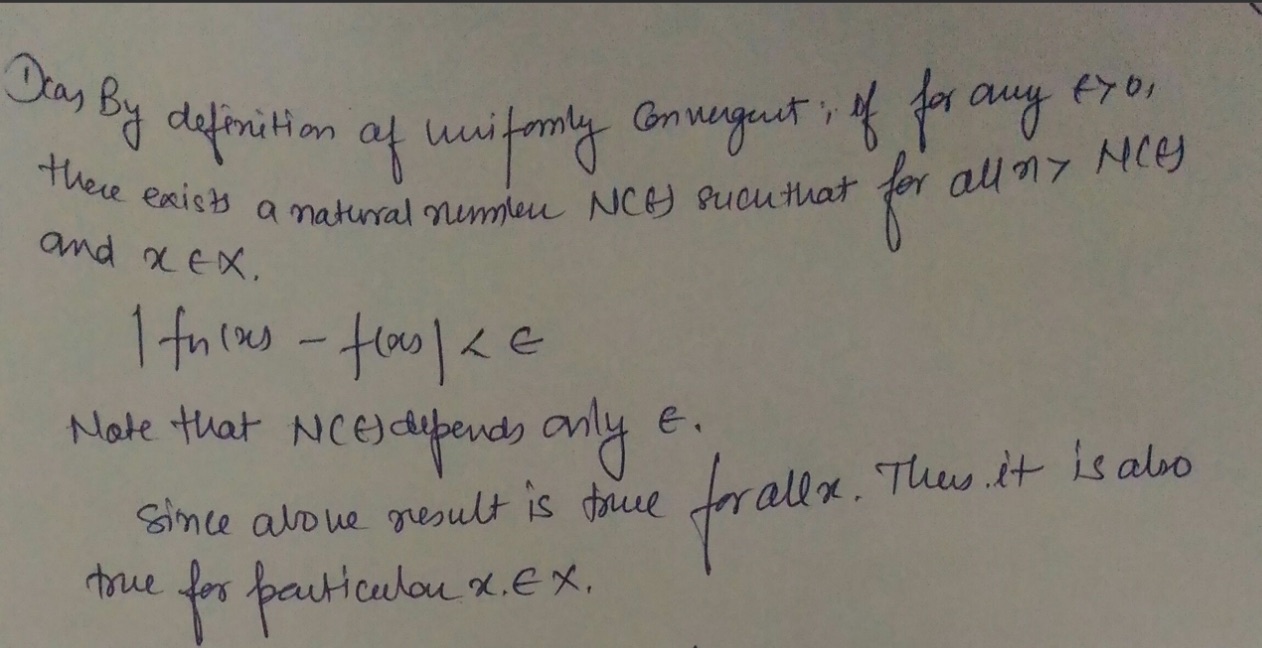 1)(a) By definition of uniformly Convergent, if for any ε>0,
there exists a natural number N(ε) such that for all n> N(ε)
and x ∈ X.
|fn(x) - f(x)| < ε
Note that N(ε) depends only ε.
Since above result is true for all x. Thus it is also
true for particular x ∈ X.